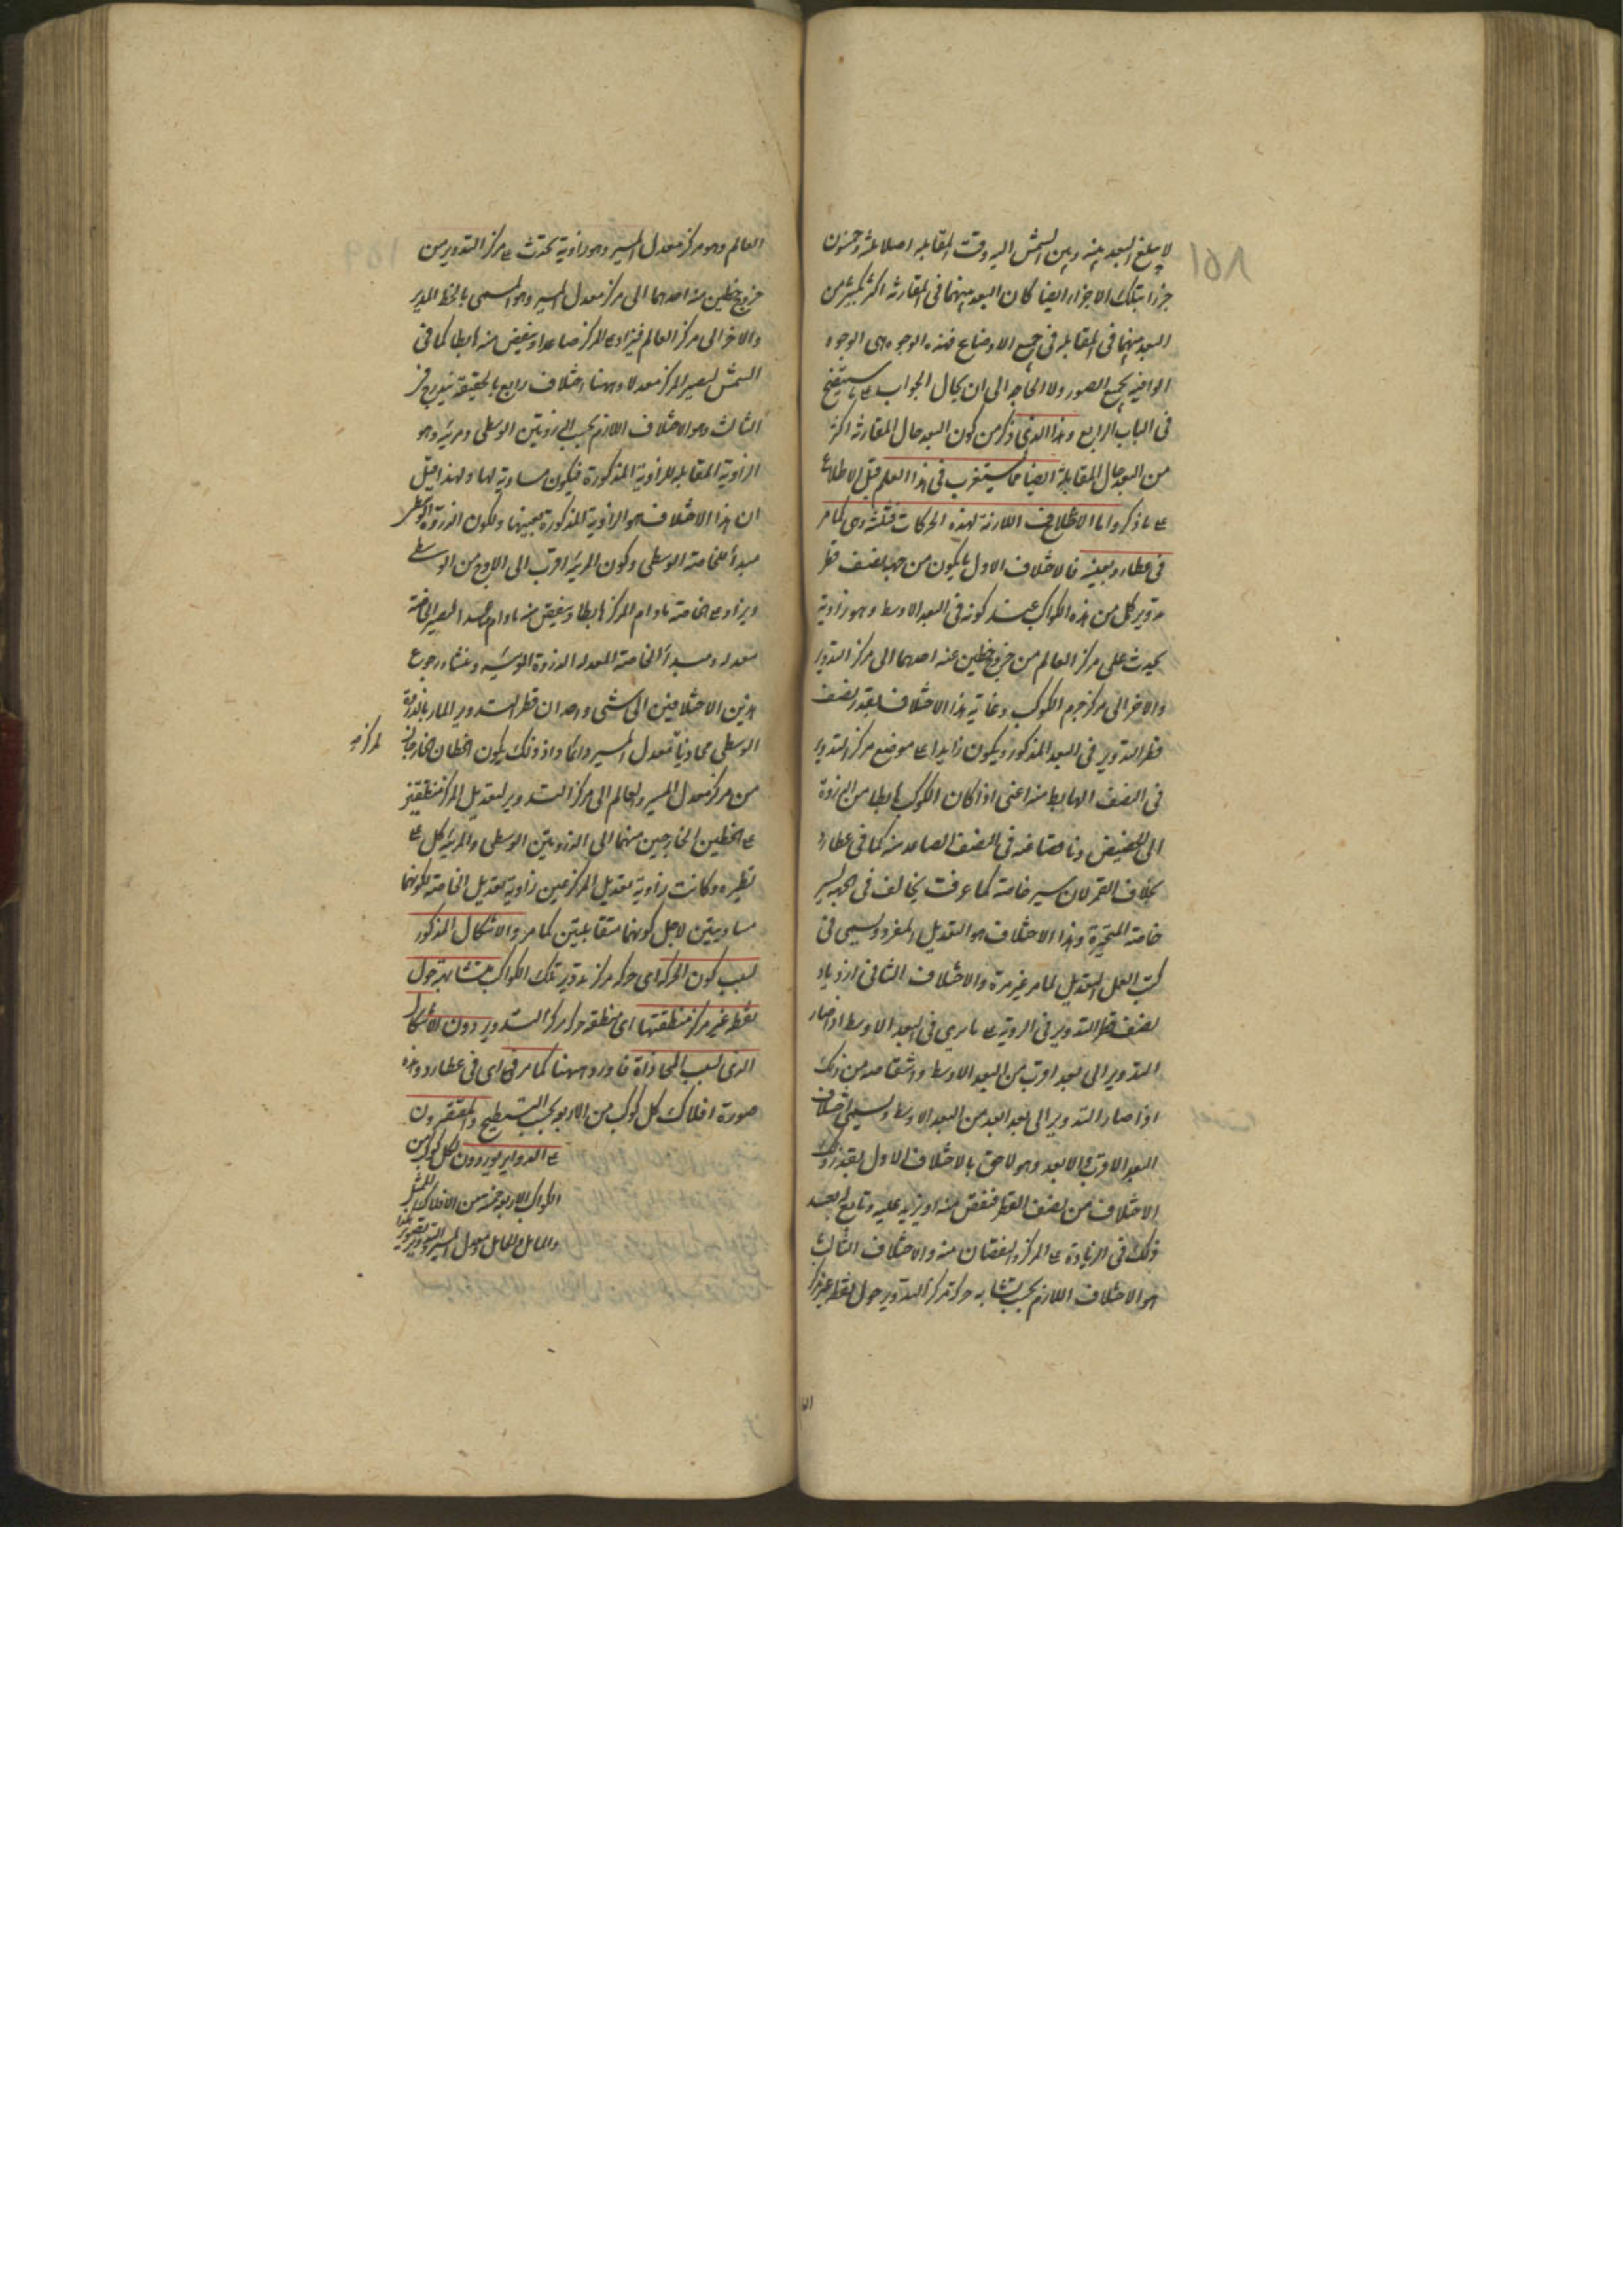 ١٥٨
لا يبلغ البعد بينه وبين الشمس اليه وقت المقابلة اصلا ثلثة وخمسون
جزءا بتلك الاجزاء ايضا كان البعد بينهما فى المقارنة اكثر بكثير من
البعد بينهما فى المقابلة فى جميع الاوضاع فهذه الوجوه هى الوجوه
الوافية بجميع الصور ولا الحاجة الى ان يحال الجواب على ما سيتضح
فى الباب الرابع وهذا الذى ذكر من كون البعد حال المقارنة اكثر
من البعد حال المقابلة ايضا مما يستغرب فى هذا العلم قبل الاطلاع
على ما ذكر واما الاختلافات اللازمة لهذه الحركات فثلثة وهى كما مر
فى عطارد بعينه فالاختلاف الاول ما يكون من جهة نصف قطر
تدوير كل من هذه الكواكب عند كونه فى البعد الاوسط وهو زاوية
يحدث على مركز العالم من خروج خطين عنه احدهما الى مركز التدوير
والاخر الى مركز جرم الكوكب وغاية هذا الاختلاف بقدر نصف
قطر التدوير فى البعد المذكور ويكون زايدا على موضع مركز التدوير
فى النصف الهابط منه اعنى اذا كان الكوكب هابطا من الذروة
الى الحضيض وناقصا عنه فى النصف الصاعد منه كما فى عطارد
بخلاف القمر لان سير خاصته كما عرفت يخالف فى الجهة لسير
خاصة المتحيرة وهذا الاختلاف هو التعديل المفرد ويسمى فى
كتب العمل التعديل لما مر غير مرة والاختلاف الثانى ازدياد
نصف قطر التدوير فى الروية على ما يرى فى البعد الاوسط اذا صار
التدوير الى بعد اقرب من البعد الاوسط وانتقاصه من ذلك
اذا صار التدوير الى بعد ابعد من البعد الاوسط ويسمى اختلاف
البعد الاقرب والابعد وهو لاحق بالاختلاف الاول بقدر ذلك
الاختلاف من نصف القطر فينقص منه او يزيد عليه وتابع له بعد
ذلك فى الزيادة على المركز والنقصان منه والاختلاف الثالث
هو الاختلاف اللازم بحسب تشابه حركة مركز التدوير حول نقطة غير مركز
العالم وهو مركز معدل المسير وهو زاوية تحدث على مركز التدوير من
خروج خطين منه احدهما الى مركز معدل المسير وهو المسمى بالخط المدير
والاخر الى مركز العالم فيزاد على المركز صاعدا وينقص منه هابطا كما فى
الشمس ليصير المركز معدلا وههنا اختلاف رابع بالحقيقة يندرج فى
الثالث وهو الاختلاف اللازم بحسب الذروتين الوسطى والمرئية وهو
الزاوية المقابلة للزاوية المذكورة فيكون مساوية لها ولهذا قيل
ان هذا الاختلاف هو الزاوية المذكورة بعينها ولكون الذروة الوسطى
مبدأ للخاصة الوسطى وكون المرئية اقرب الى الاوج من الوسطى
ويزاد على الخاصة مادام المركز هابطا وينقص منه مادام صاعدا ليصير الخاصة
معدلة ومبدأ الخاصة المعدلة الذروة المرئية ومنشاء رجوع
هذين الاختلافين الى شئ واحد ان قطر التدوير المار بالذروة
الوسطى محاذيا لمركز معدل المسير دائما واذ ذلك يكون الخطان الخارجان
من مركز معدل المسير والعالم الى مركز التدوير لتعديل المركز منطبقين
على الخطين الخارجين منهما الى الذروتين الوسطى والمرئية كل على
نظيره وكانت زاوية تعديل المركز عين زاوية تعديل الخاصة لكونهما
مساويتين لاجل كونهما متقابلتين كما مر والاشكال المذكور
بسبب كون الحركة اى حركة مركز تدوير تلك الكواكب متشابهة حول
نقطة غير مركز منطقتها اى منطقة حركة مركز التدوير دون الاشكال
الذى بسبب المحاذاة فا ورد وههنا كما مر فى اى فى عطارد وهذه
صورة افلاك كل كوكب من الاربعة بحسب التسطيح والمقتصرون
على الدواير يوردون لكل كوكب من
الكواكب الاربعة خمسة من الافلاك الممثل
والمائل والحامل ومعدل المسير والتدوير